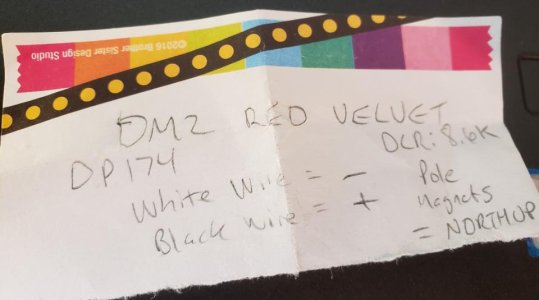 ©2016 Brother Sister Design Studio
DM2 RED VELVET
DP174
DCR: 8.6K
White Wire = -
Black Wire = +
Pole
Magnets
= NORTH UP